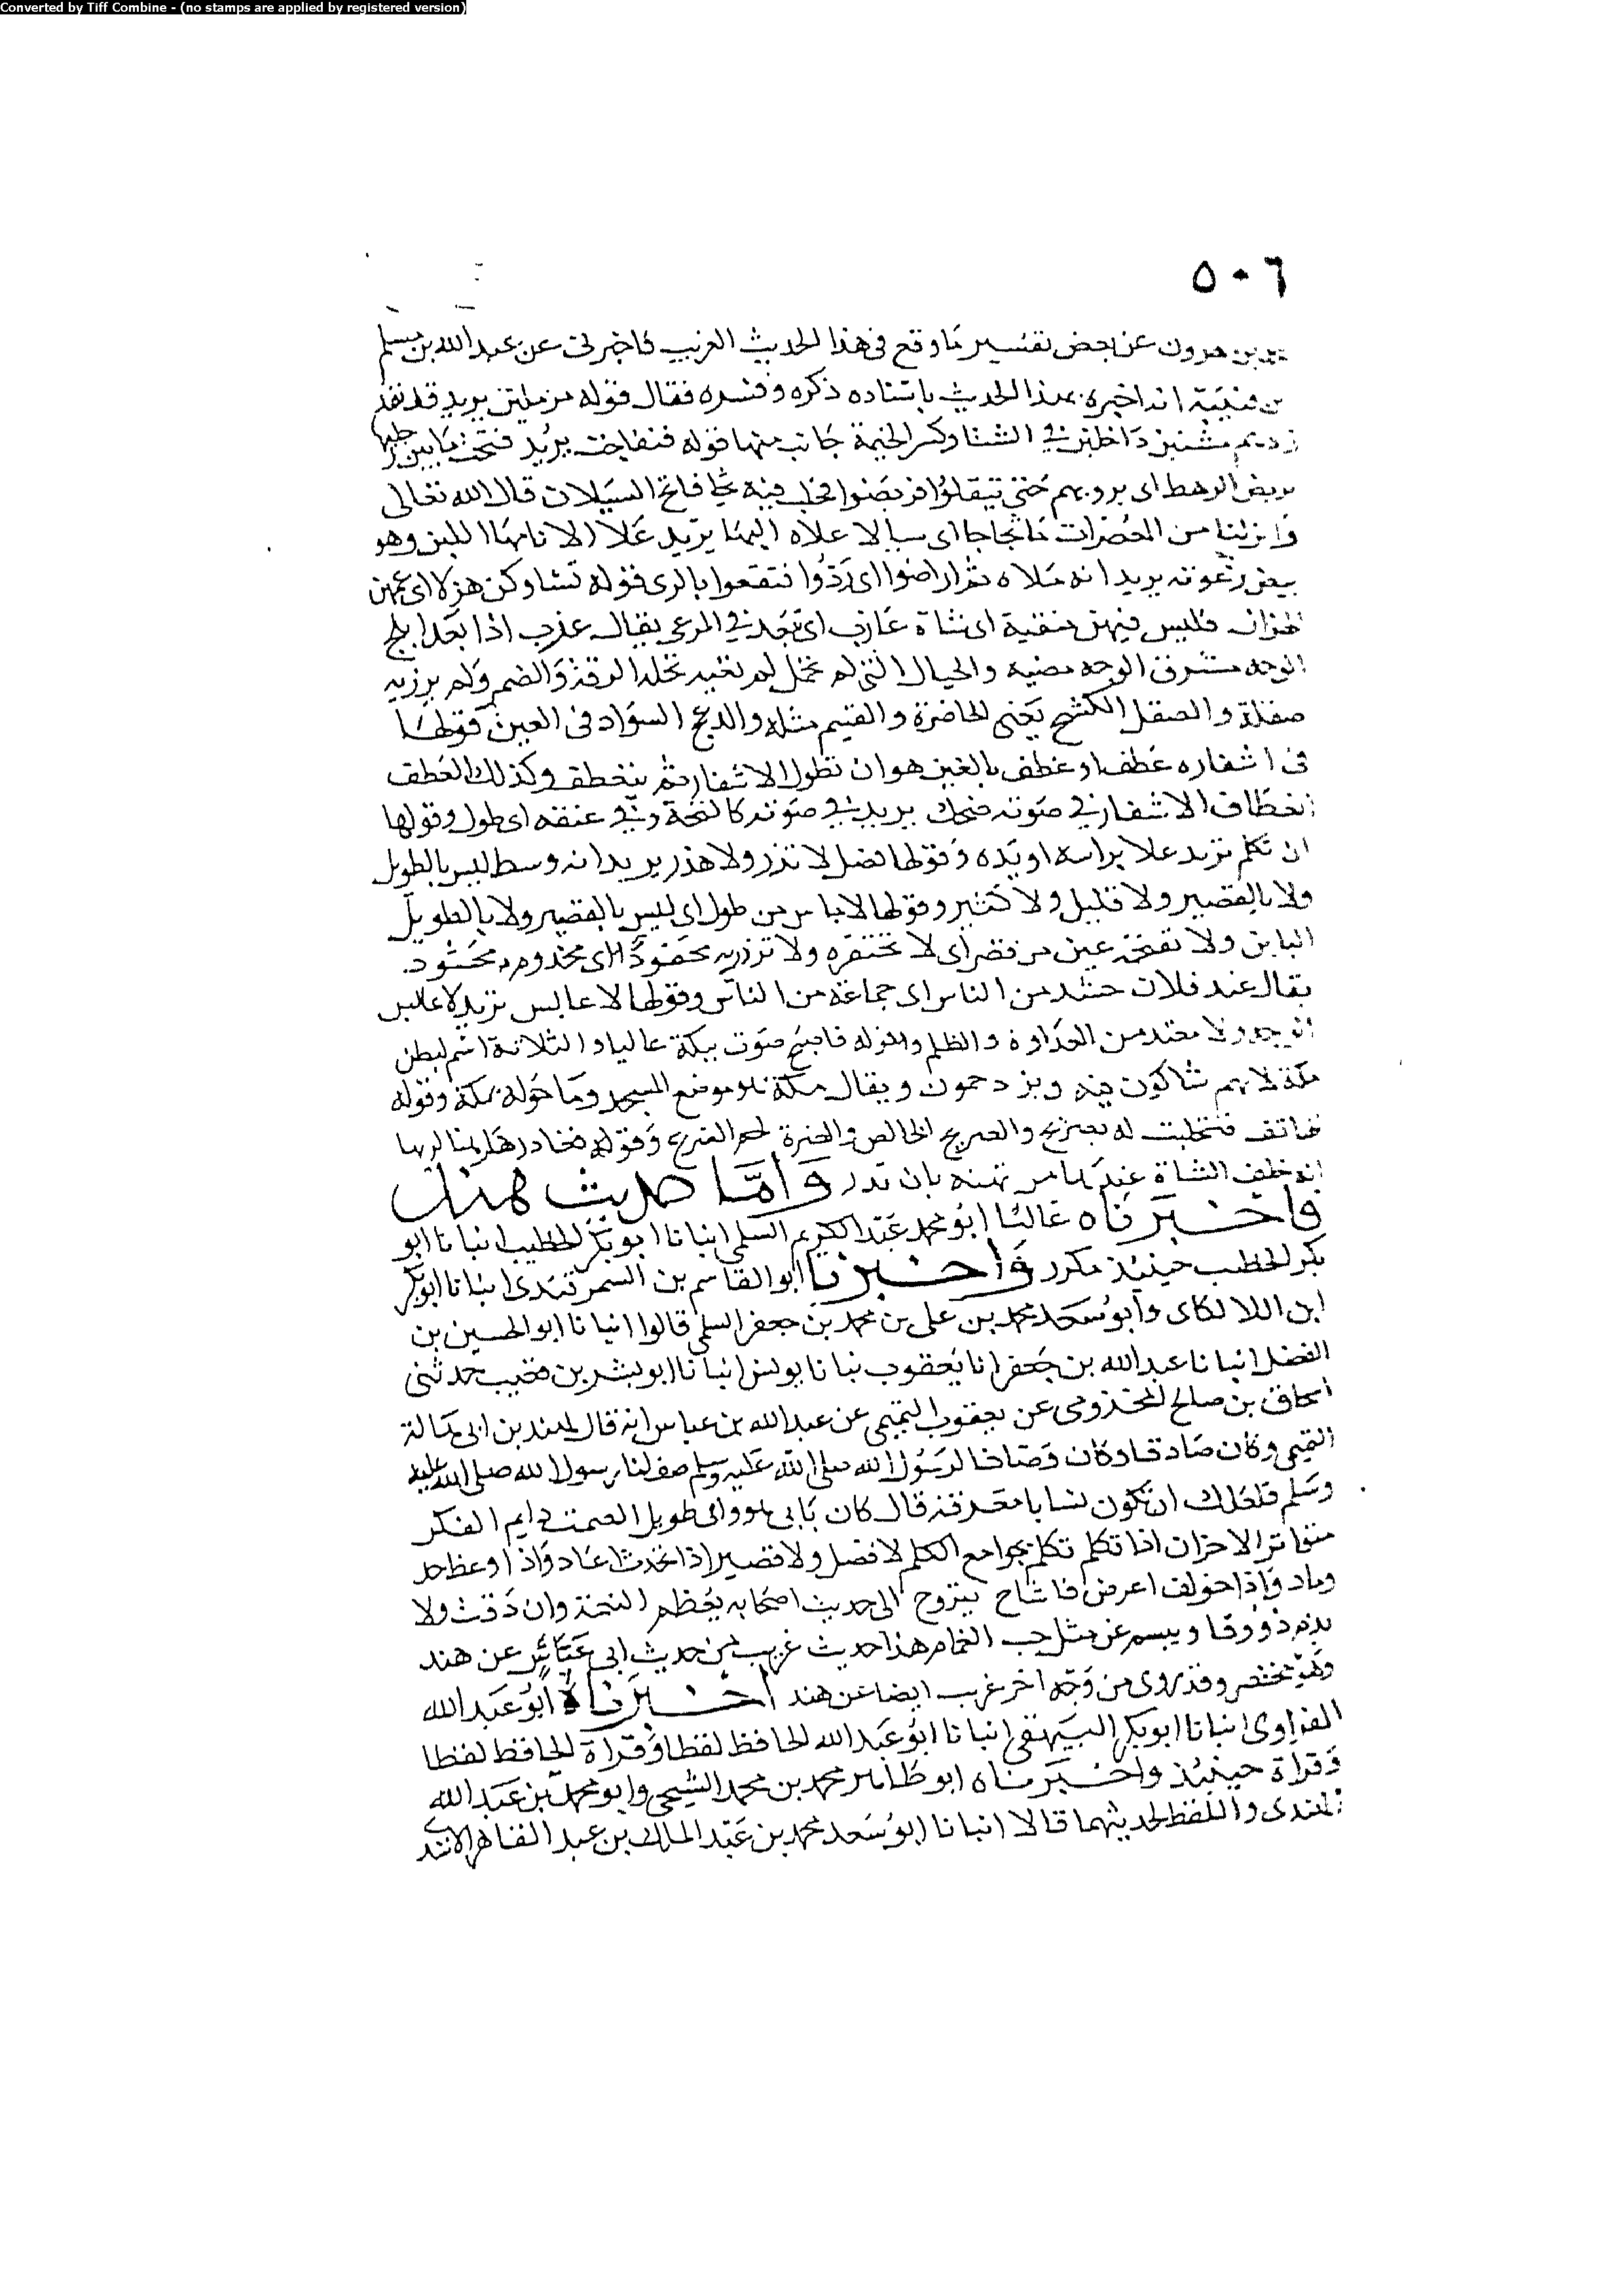 Converted by Tiff Combine - (no stamps are applied by registered version)
٥٠٦
بن هرون عن بعض تفسير ما وقع فى هذا الحديث الغريب فاخبرنى عن عبد الله بن مسلم
بن قتيبة انه اخبره بهذا الحديث باسناده ذكره وفسره فقال قوله مرملين يريد قد نفد
زادهم مشتين داخلين في الشتا وكسر الخيمة جانب منها قوله فتفاجت يريد فتحت ما بين رجليها
يربض الرهط اى يرويهم حتى يثقلوا فربضوا فحلب فيه ثجا فالثج السيلان قال الله تعالى
وانزلنا من المعصرات ما ثجاجا اى سيالا علاه البها يريد علا الانا بها اللبن وهو
بيض رغوته يريد انه ملاه ثم اراضوا اى رووا فنقعوا بالرى قوله تشاوكن هزلا اى عمهن
الهزال فليس فيهن منقية اى شاة عازب اى بعد في المرعى يقال عزب اذا بعد ابلج
الوجه مشرق الوجه مضيه والحيال التى لم تحمل لم تعبه نحلة الدقة والضمر ولم يزريه
صقلة والصقل الكشح يعنى الخاصرة والقسيم مثله والدعج السواد فى العين قولها
فى اشفاره عطف او غطف بالغين هو ان تطول الاشفار ثم ينعطف وكذلك العطف
انعطاف الاشفار في صوته ضحك يريد في صوته كالبحة وفي عنقه اى طول وقولها
ان تكلم تريد علا براسه او يده وقولها فصل لا نزر ولا هذر يريد انه وسط ليس بالطويل
ولا بالقصير ولا قليل ولا كثير وقولها لا ياس من طول اى ليس بالقصير ولا بالطويل
الباين ولا تقتحمه عين من قصر اى لا تحتقره ولا تزدريه محفود اى مخدوم محشود
يقال عند فلان حشد من الناس اى جماعة من الناس وقولها لا عابس تريد لا عابس
الوجه ولا معتد من العداوة والظلم وقوله فاصبح صوت ببكة عاليا والثلاثة اسم لبطن
مكة لانهم يتباكون فيه ويزدحمون ويقال مكة هو موضع المسجد وما حوله بمكة وقوله
هاتف فتحلبت له بصريح والصريح الخالص والضرة لحم الضرع وقوله فغادرها رهنا لديها
انه خلف الشاة عندها مرتهنه بان تدر واما حديث هند
فاخبرناه عاليا ابو محمد عبد الكريم السلمى انبانا ابو بكر الخطيب انبانا ابو
بكر الخطيب حينئذ مكرر واخبرنا ابو القاسم بن السمرقندى انبانا ابو بكر
ابن اللالكاى وابو سعد محمد بن على بن محمد بن جعفر السلمى قالوا انبانا ابو الحسين بن
الفضل انبانا عبد الله بن جعفر انا يعقوب نبانا يونس انبانا ابو بشر بن حدثنى
اسحاق بن صالح المخزومى عن يعقوب التيمى عن عبد الله بن عباس انه قال لهند بن ابى هالة
التيمى وكان صادقا وكان وصافا لرسول الله صلى الله عليه وسلم صف لنا رسول الله صلى الله عليه
وسلم فلعلك ان تكون نسابا معرفة قال كان بابى هو وامى طويل الصمت دايم الفكر
متواتر الاحزان اذا تكلم تكلم بجوامع الكلم لا فضل ولا قصير اذا تحدث اعاد واذا اوعظ جد
وماد واذا خولف اعرض فاشاح يتروح الى حديث اصحابه يعظم النعمة وان دقت ولا
يذم ذووقا ويبسم عن مثل حب الغمام هذا حديث غريب من حديث ابى عباس عن هند
وهو مختصر وقد روى من وجه اخر غريب ايضا عن هند اخبرناه ابو عبد الله
الفراوى انبانا ابو بكر البيهقى انبانا ابو عبد الله الحافظ لفظا وقراة الحافظ لفظا
وقراة حينئذ واخبرناه ابو طاهر محمد بن محمد الشيحى وابو محمد بن عبد الله
واللفظ لحديثهما قالا انبانا ابو سعد محمد بن عبد الملك بن عبد القاهر